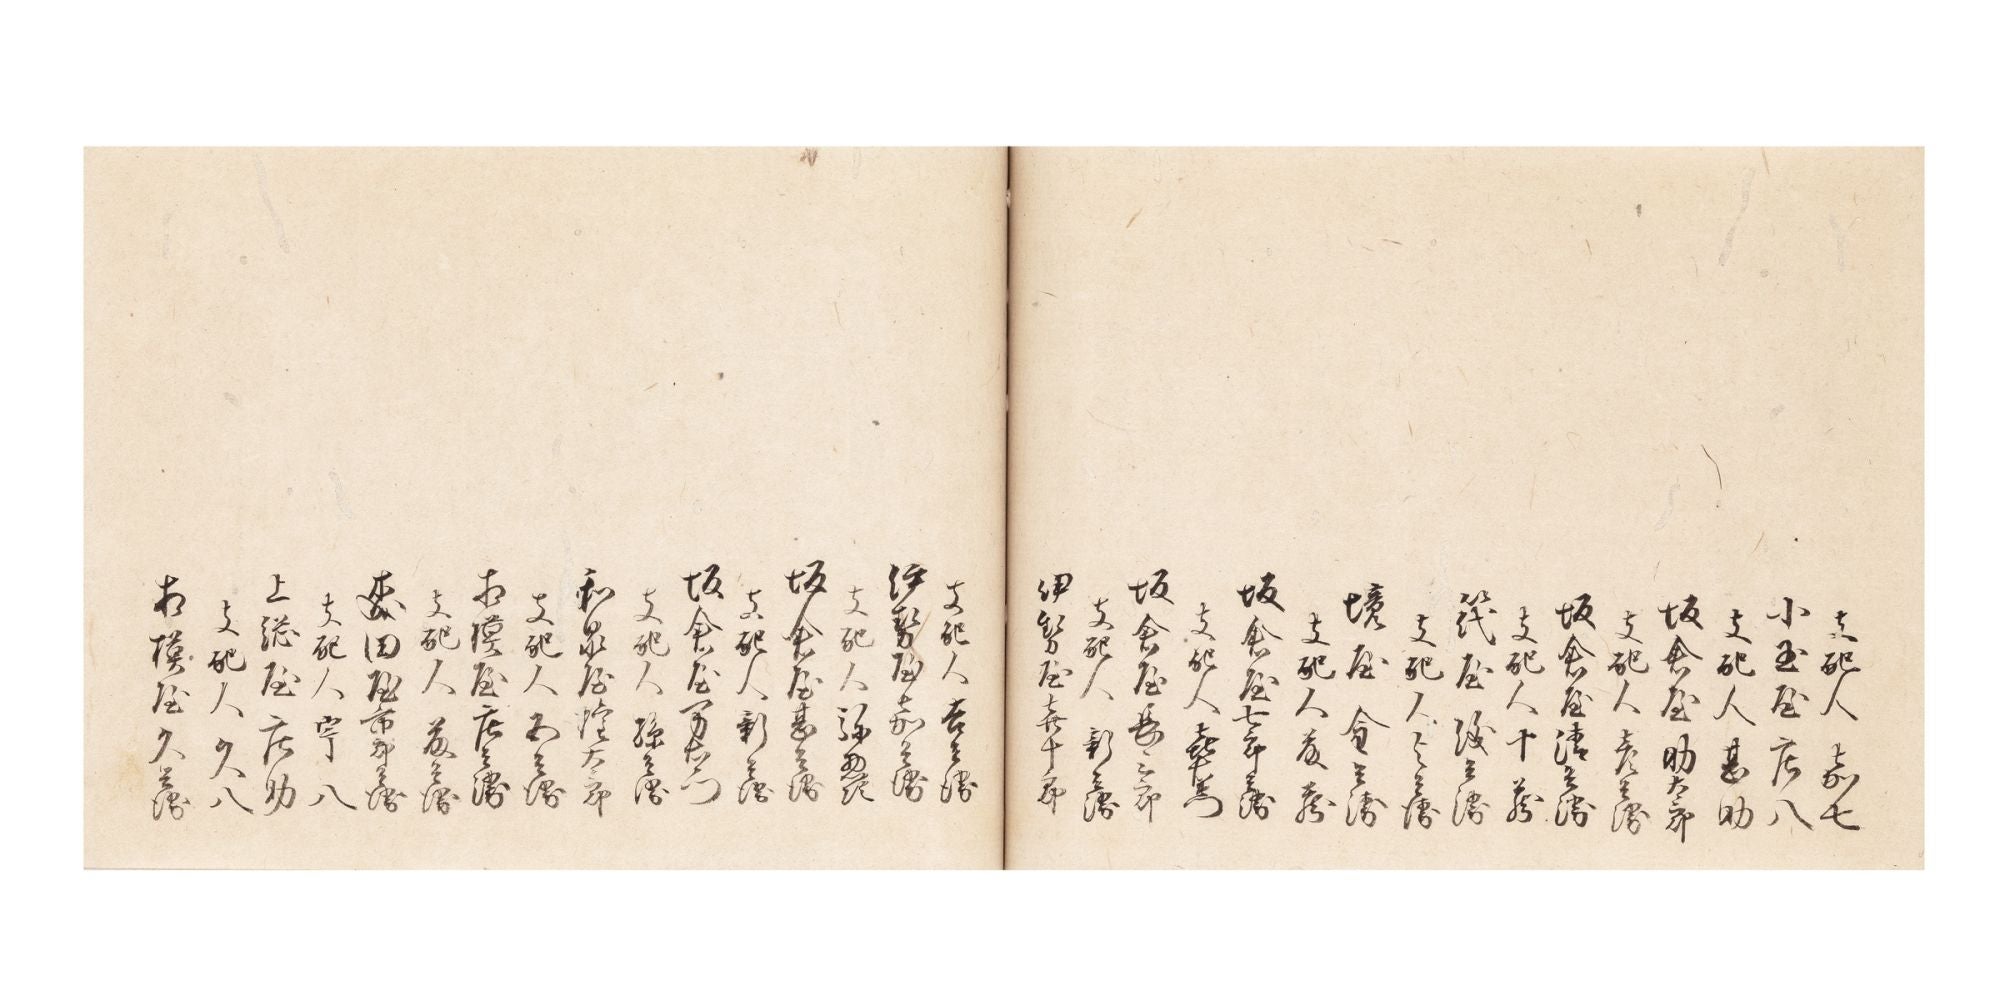 支配人 嘉七
小玉屋 庄八
支配人 甚助
坂倉屋 助太郎
支配人 彦兵衛
坂倉屋清兵衛
支配人 十蔵
筏屋
支配人 兵衛
境屋 兵衛
支配人 友蔵
坂倉屋七郎兵衛
支配人
坂倉屋長三郎
支配人 新兵衛
伊勢屋喜十郎
支配人 吉兵衛
伊勢屋嘉兵衛
支配人
坂倉屋甚兵衛
支配人 新兵衛
坂倉屋万右衛門
支配人 孫兵衛
和泉屋 太郎
支配人 兵衛
相模屋庄兵衛
支配人 兵衛
森田屋市郎兵衛
支配人 宇八
上総屋 庄助
支配人 久八
相模屋 久兵衛